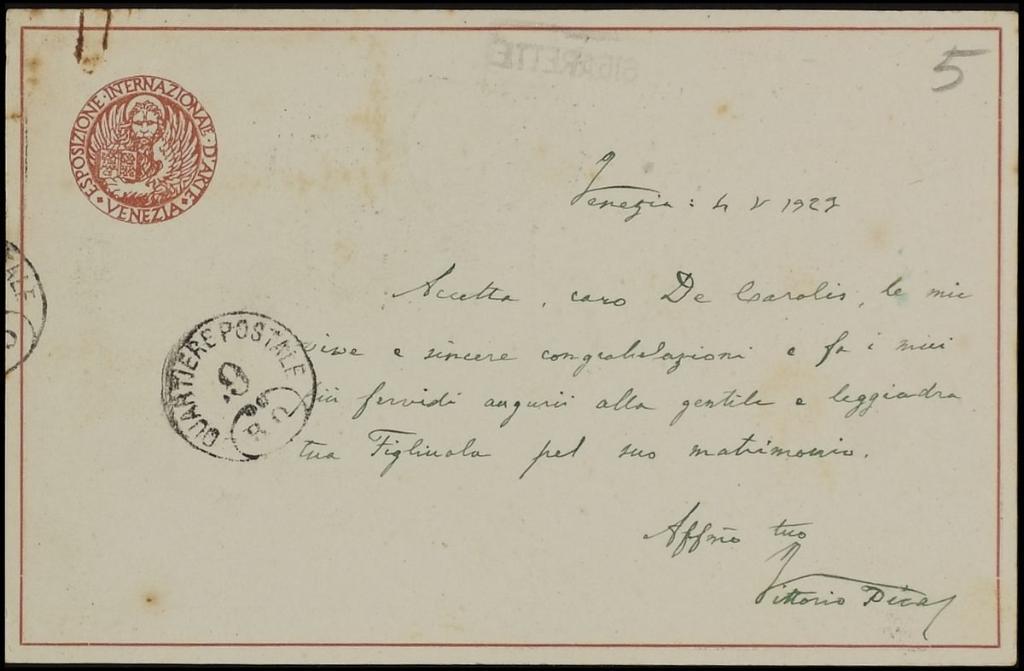 SIGARETTE
5
ESPOSIZIONE · INTERNAZIONALE · D'ARTE · VENEZIA ·
Venezia : 4 V 1927
Accetta, caro De Carolis, le mie
vive e sincere congratulazioni e fa i miei
più fervidi augurii alla gentile e leggiadra
tua Figliuola pel suo matrimonio.
Affmo tuo
Vittorio Pica
QUARTIERE POSTALE
9
8
ALE